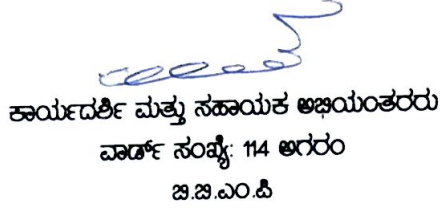 ಕಾರ್ಯದರ್ಶಿ ಮತ್ತು ಸಹಾಯಕ ಅಭಿಯಂತರರು
ವಾರ್ಡ್ ಸಂಖ್ಯೆ: 114 ಅಗರಂ
ಬಿ.ಬಿ.ಎಂ.ಪಿ